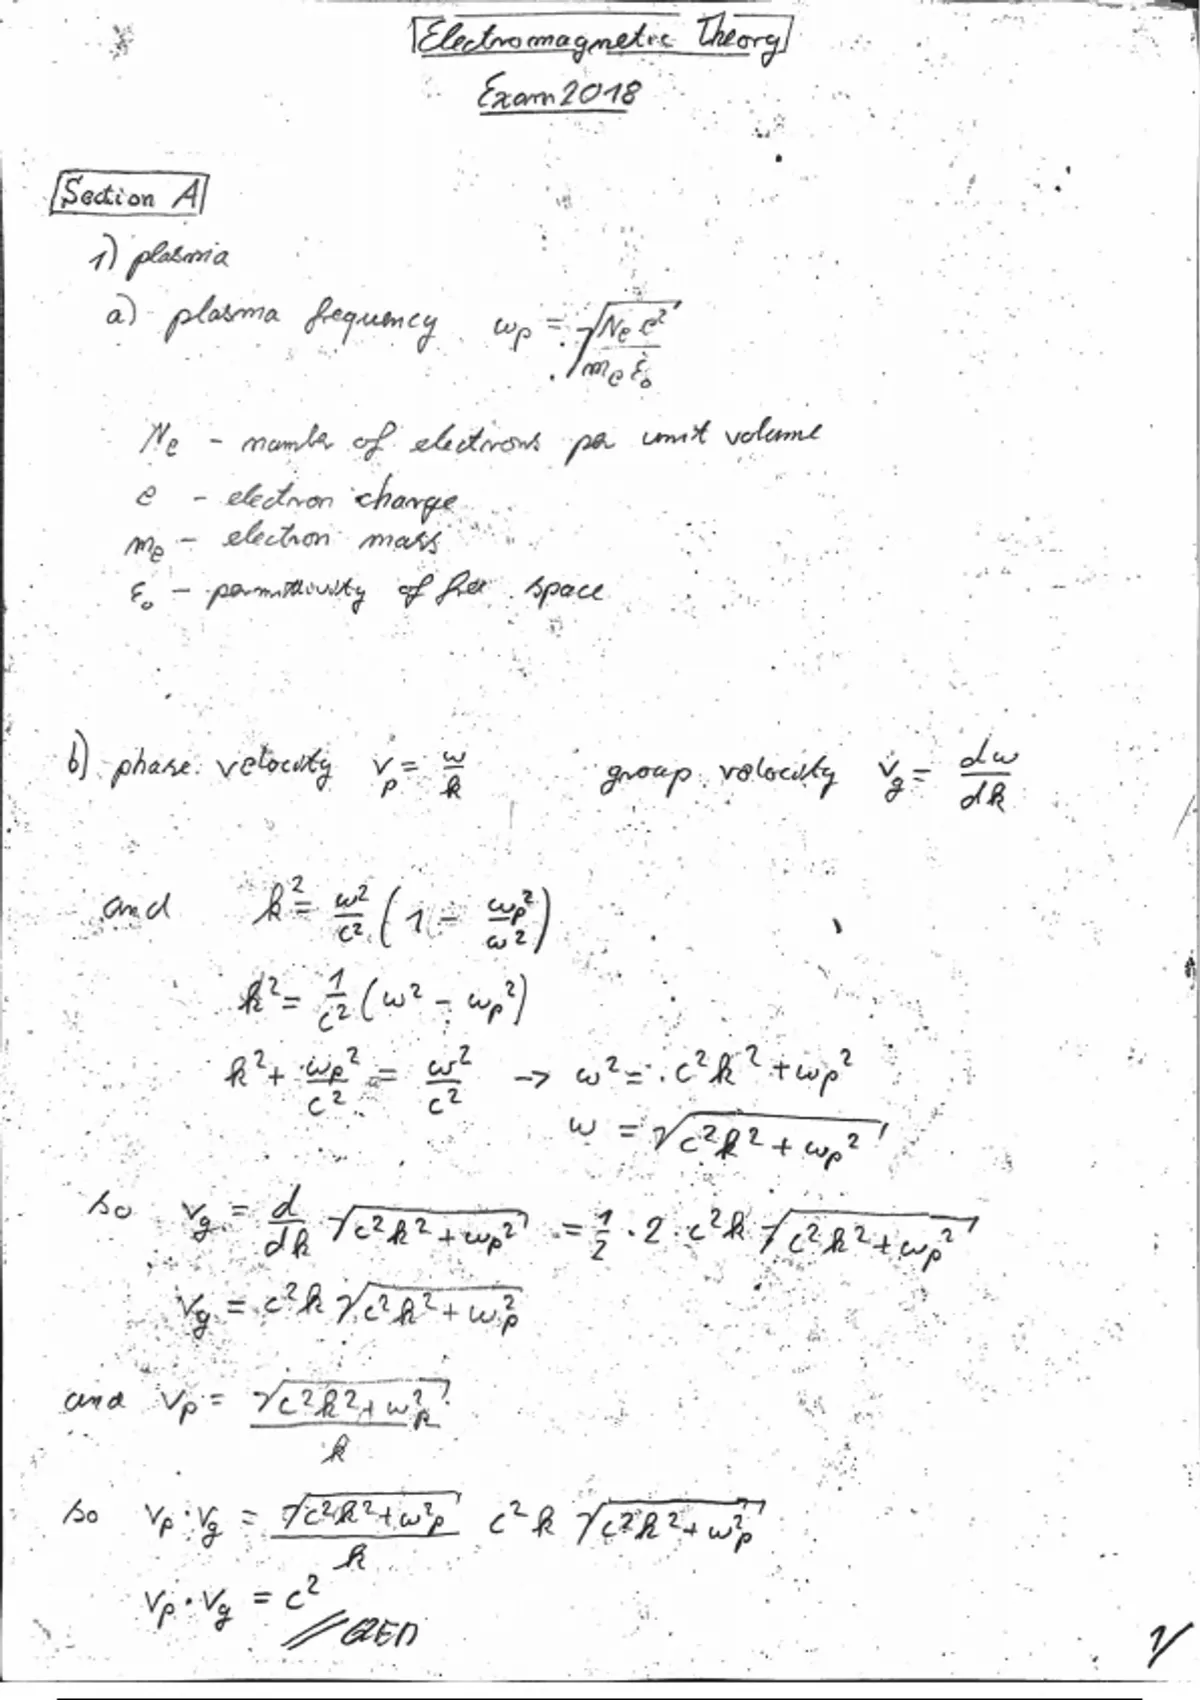 Electromagnetic Theory
Exam 2018
Section A
1) plasma
a) plasma frequency ωp = √(Ne e² / me ε₀)
Ne - number of electrons per unit volume
e - electron charge
me - electron mass
ε₀ - permittivity of free space
b) phase velocity vp = ω/k group velocity vg = dω/dk
and k² = ω²/c² (1 - ωp²/ω²)
k² = 1/c² (ω² - ωp²)
k² + ωp²/c² = ω²/c² -> ω² = c²k² + ωp²
ω = √(c²k² + ωp²)
so vg = d/dk √(c²k² + ωp²) = 1/2 · 2 · c²k √(c²k² + ωp²)
vg = c²k √(c²k² + ωp²)
and vp = √(c²k² + ωp²) / k
so vp · vg = √(c²k² + ωp²) / k c²k √(c²k² + ωp²)
vp · vg = c²
// QED
1/